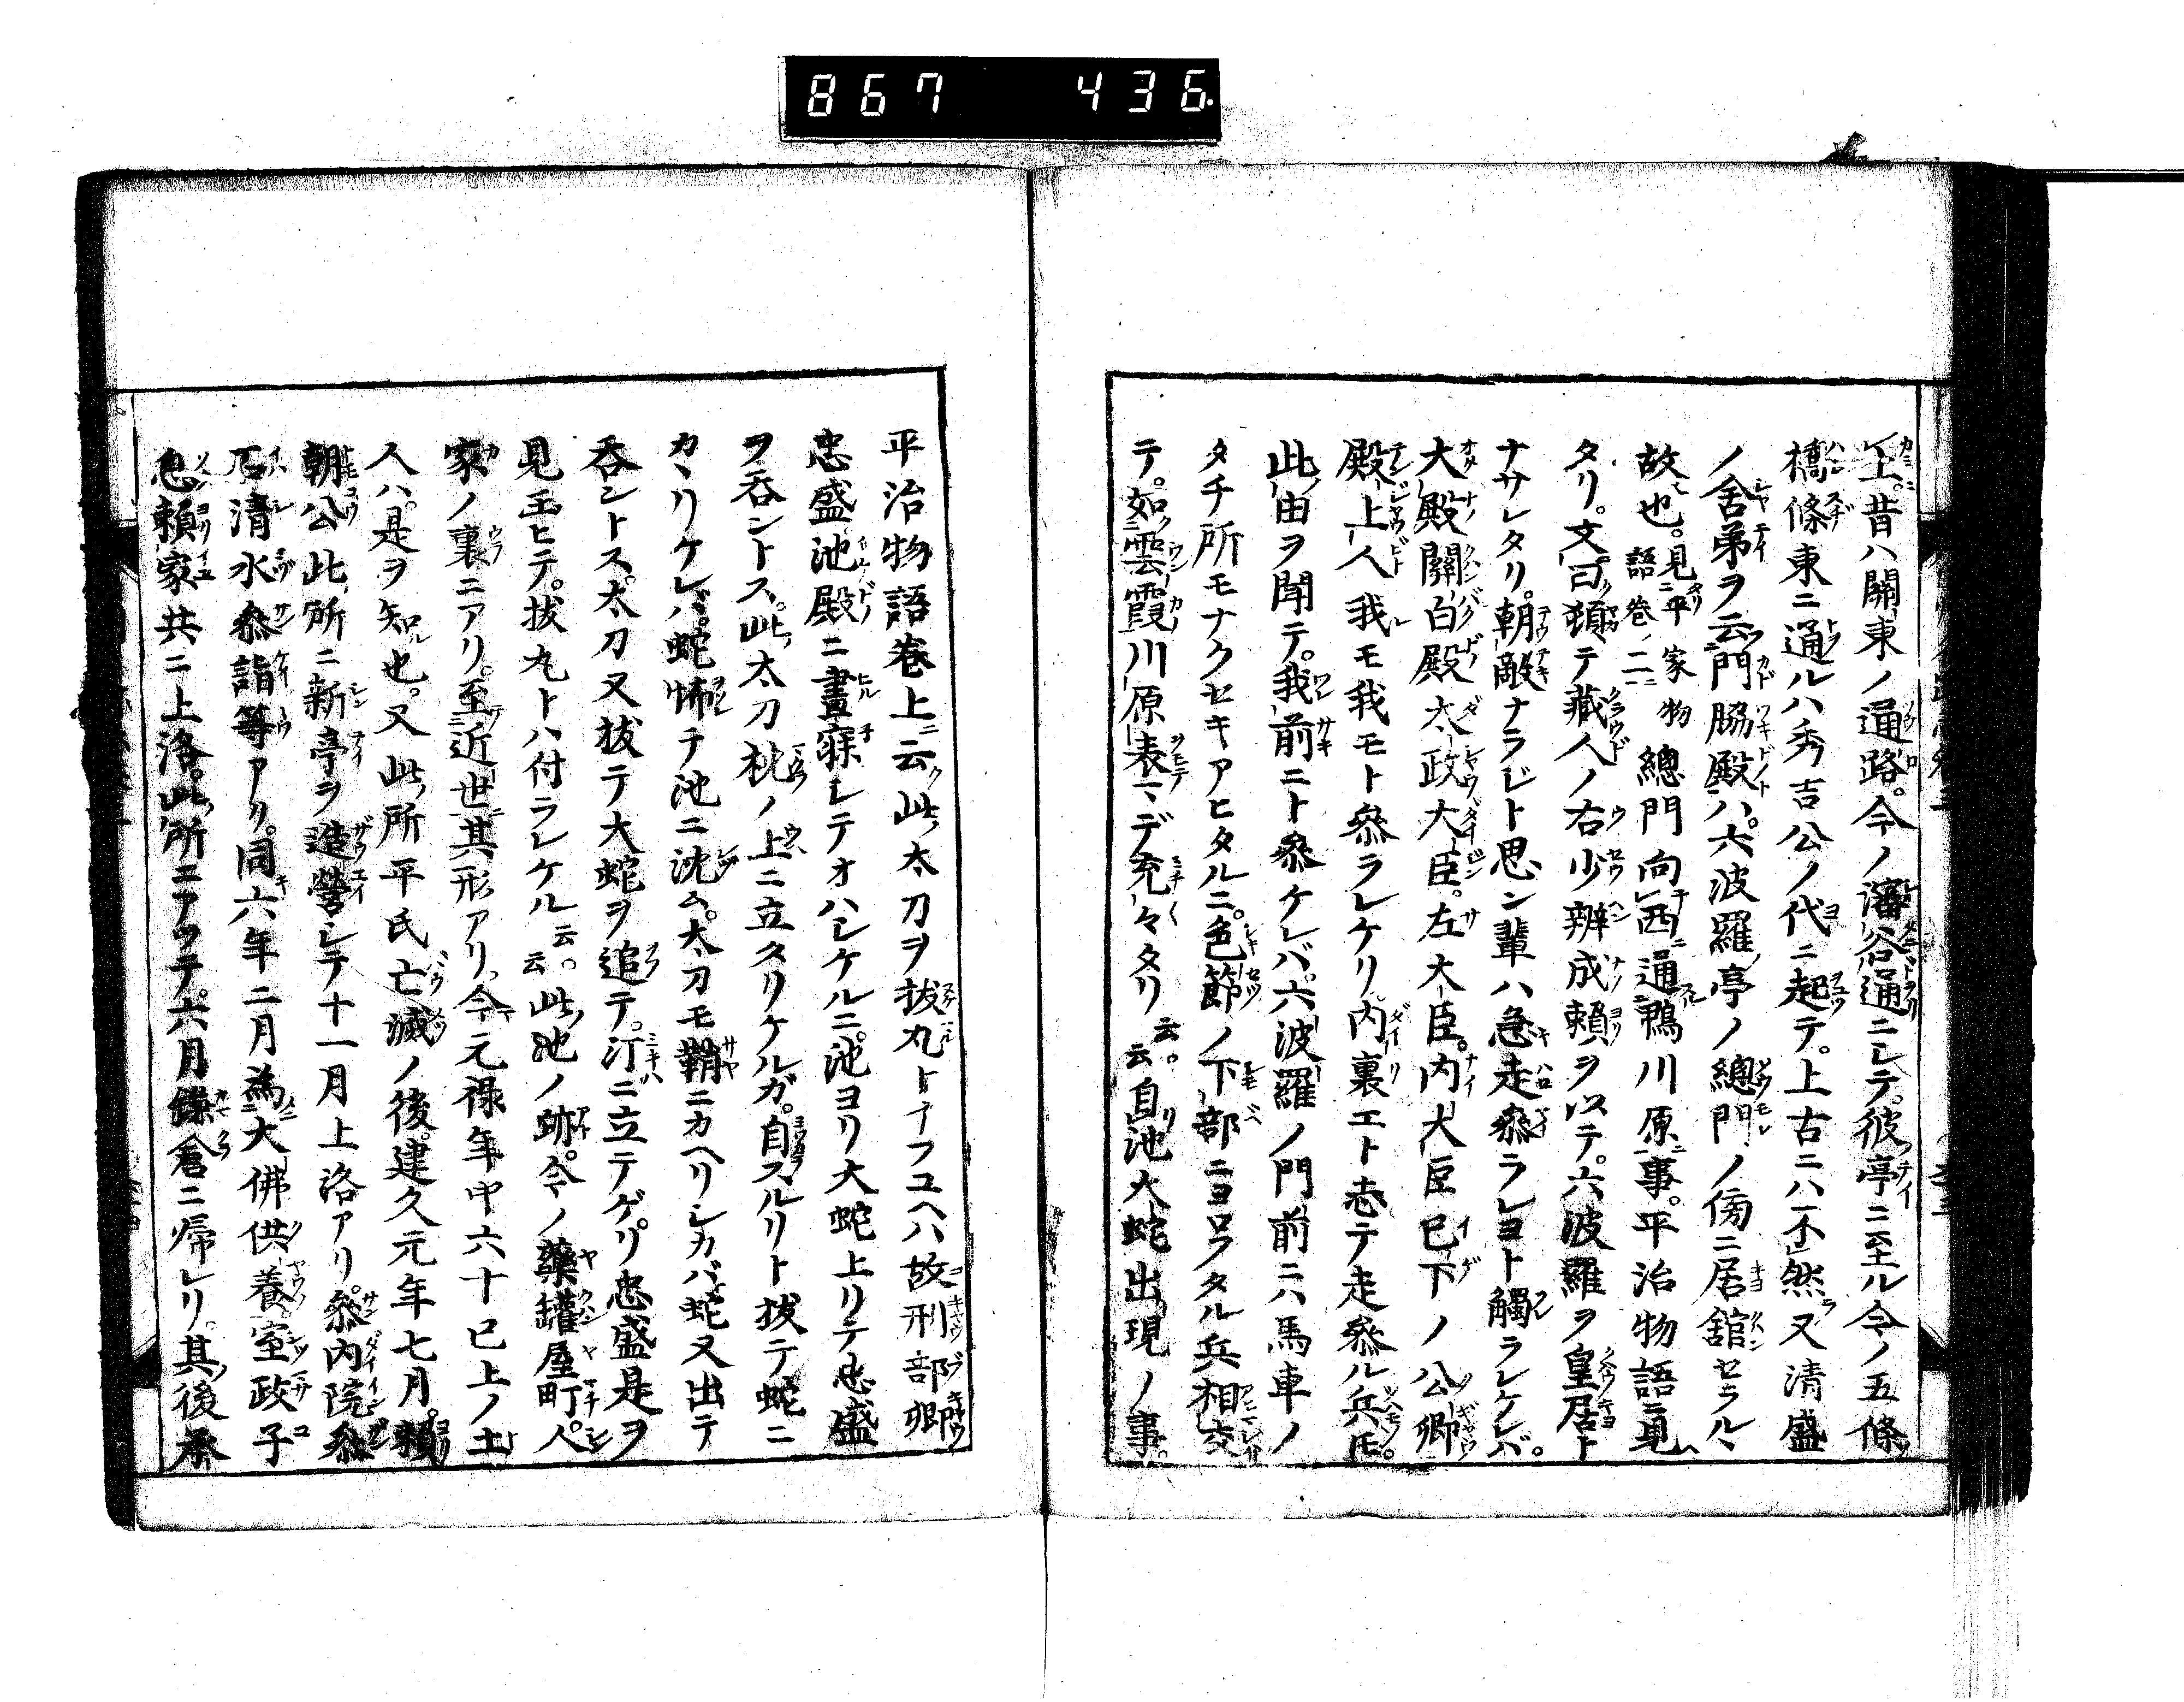 867 436.
上。昔ハ關東ノ通路。今ノ瀋谷通ニシテ。彼亭ニ至ル今ノ五條
橋條東ニ通ルハ秀吉公ノ代ニ起テ。上古ニハ不然又清盛
ノ舍弟ヲ云門脇殿ハ。六波羅亭ノ總門ノ傍ニ居舘セラルヽ
故也。見平家物語卷ノ二ニ 總門向西通鴨川原事。平治物語ニ見ヘ
タリ。文曰頻テ藏人ノ右少辨成頼ヲ以テ。六波羅ヲ皇居ト
ナサレタリ。朝敵ナラジト思ン輩ハ急走參ラレヨト觸ラレケレバ。
大殿關白殿太政大臣。左大臣。内大臣已下ノ公卿
殿上人我モ我モト參ラレケリ。内裏エト志テ走參ル兵𪜈。
此由ヲ聞テ。我前ニト參ケレバ。六波羅ノ門前ニハ馬車ノ
タチ所モナクセキアヒタルニ。色節ノ下部ニヨロフタル兵相交
テ。如雲霞川原表マデ充々タリ云云。自池大蛇出現ノ事。
平治物語卷上ニ云ク此太刀ヲ拔丸ト云フユヘハ故刑部卿
忠盛池殿ニ晝寐シテオハシケルニ。池ヨリ大蛇上リテ忠盛
ヲ呑ントス。此太刀枕ノ上ニ立タリケルガ。自スルリト拔テ蛇ニ
カヽリケレバ。蛇怖テ池ニ沈ム。太刀モ鞘ニカヘリシカバ蛇又出テ
呑ントス。太刀又拔テ大蛇ヲ追テ。汀ニ立テゲリ忠盛是ヲ
見玉ヒテ。拔丸トハ付ラレケル云云。此池ノ跡。今ノ藥罐屋町。人
家ノ裏ニアリ。至近世其形アリ。今元祿年中六十已上ノ土
人ハ。是ヲ知ル也。又此所平氏亡滅ノ後。建久元年七月。頼
朝公此所ニ新亭ヲ造營シテ十一月上洛アリ。參内院參
石清水參詣等アリ。同六年二月爲大佛供養。室政子
息頼家共ニ上洛。此所ニアツテ。六月鎌倉ニ帰レリ。其後承